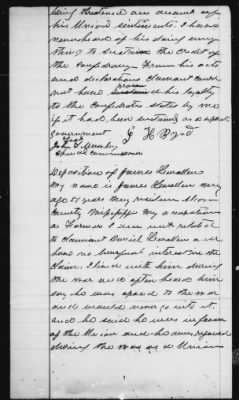 being threatened on account of
his Union sentiments. I have
never heard of his doing any
thing to sustain the credit of
the Confederacy. From his acts
and declarations Claimant could
not have proven his loyalty
to the Confederate states by me
if it had been sustained as a seperate
government G H Byrd
Test
John
special commissioner
Deposition of James Lewallen
My name is James Lewallen my
age 57 years My residence
County Mississippi My occupation
a Farmer I am not related
to Claimant Daniel Lewallen and
have no beneficial interest in the
Claim. I lived with him during
the war and often heard him
say he was oposed to the war
and would never go into it
and he said he was in favor
of the Union and he was
during the war as a Union